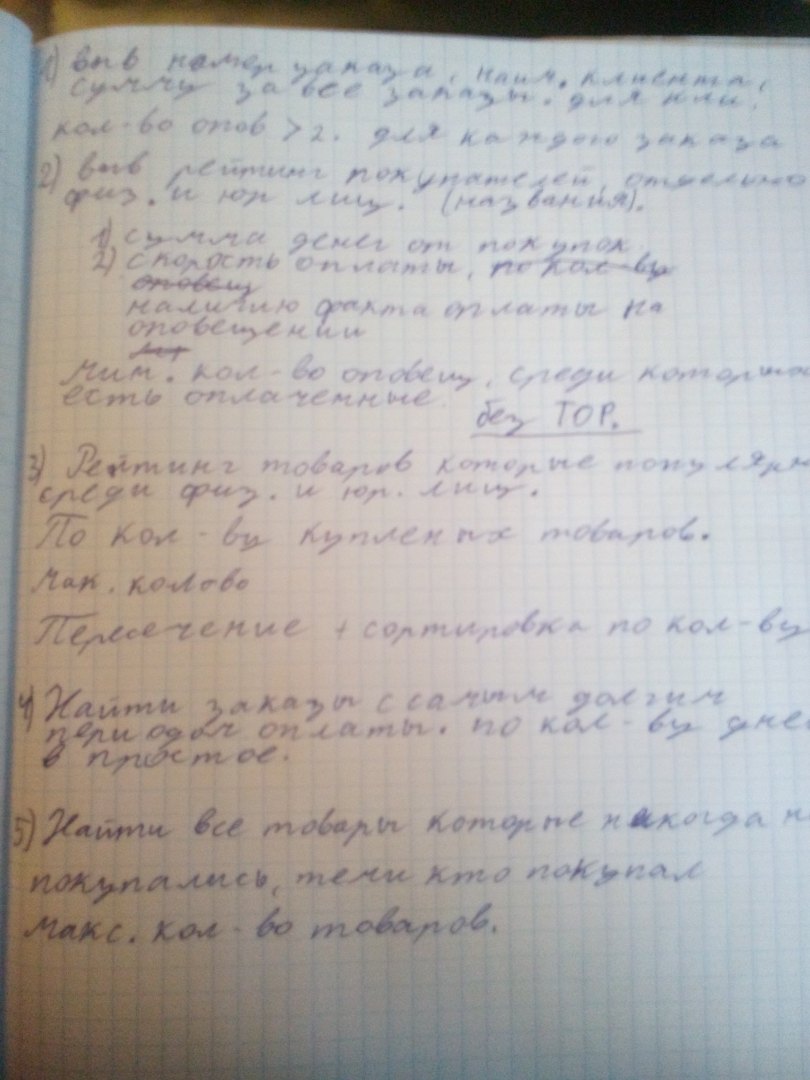 1) выв номер заказа, наим. клиента,
сумму за все заказы. для кли.
кол-во опов > 2. для каждого заказа
2) выв рейтинг покупателей, отдельно
физ. и юр лиц. (названия).
1) сумма денег от покупок
2) скорость оплаты, по кол-ву
оповещ
наличию факта оплаты на
оповещении
Мин. кол-во оповещ, среди которых
есть оплаченные.
без TOP.
3) Рейтинг товаров которые популярн
среди физ. и юр. лиц.
По кол-ву купленых товаров.
Мак. колово
Пересечение + сортировка по кол-ву
4) Найти заказы с самым долгим
периодом оплаты. по кол-ву дне
в простое.
5) Найти все товары которые никогда н
покупались, теми кто покупал
макс. кол-во товаров.